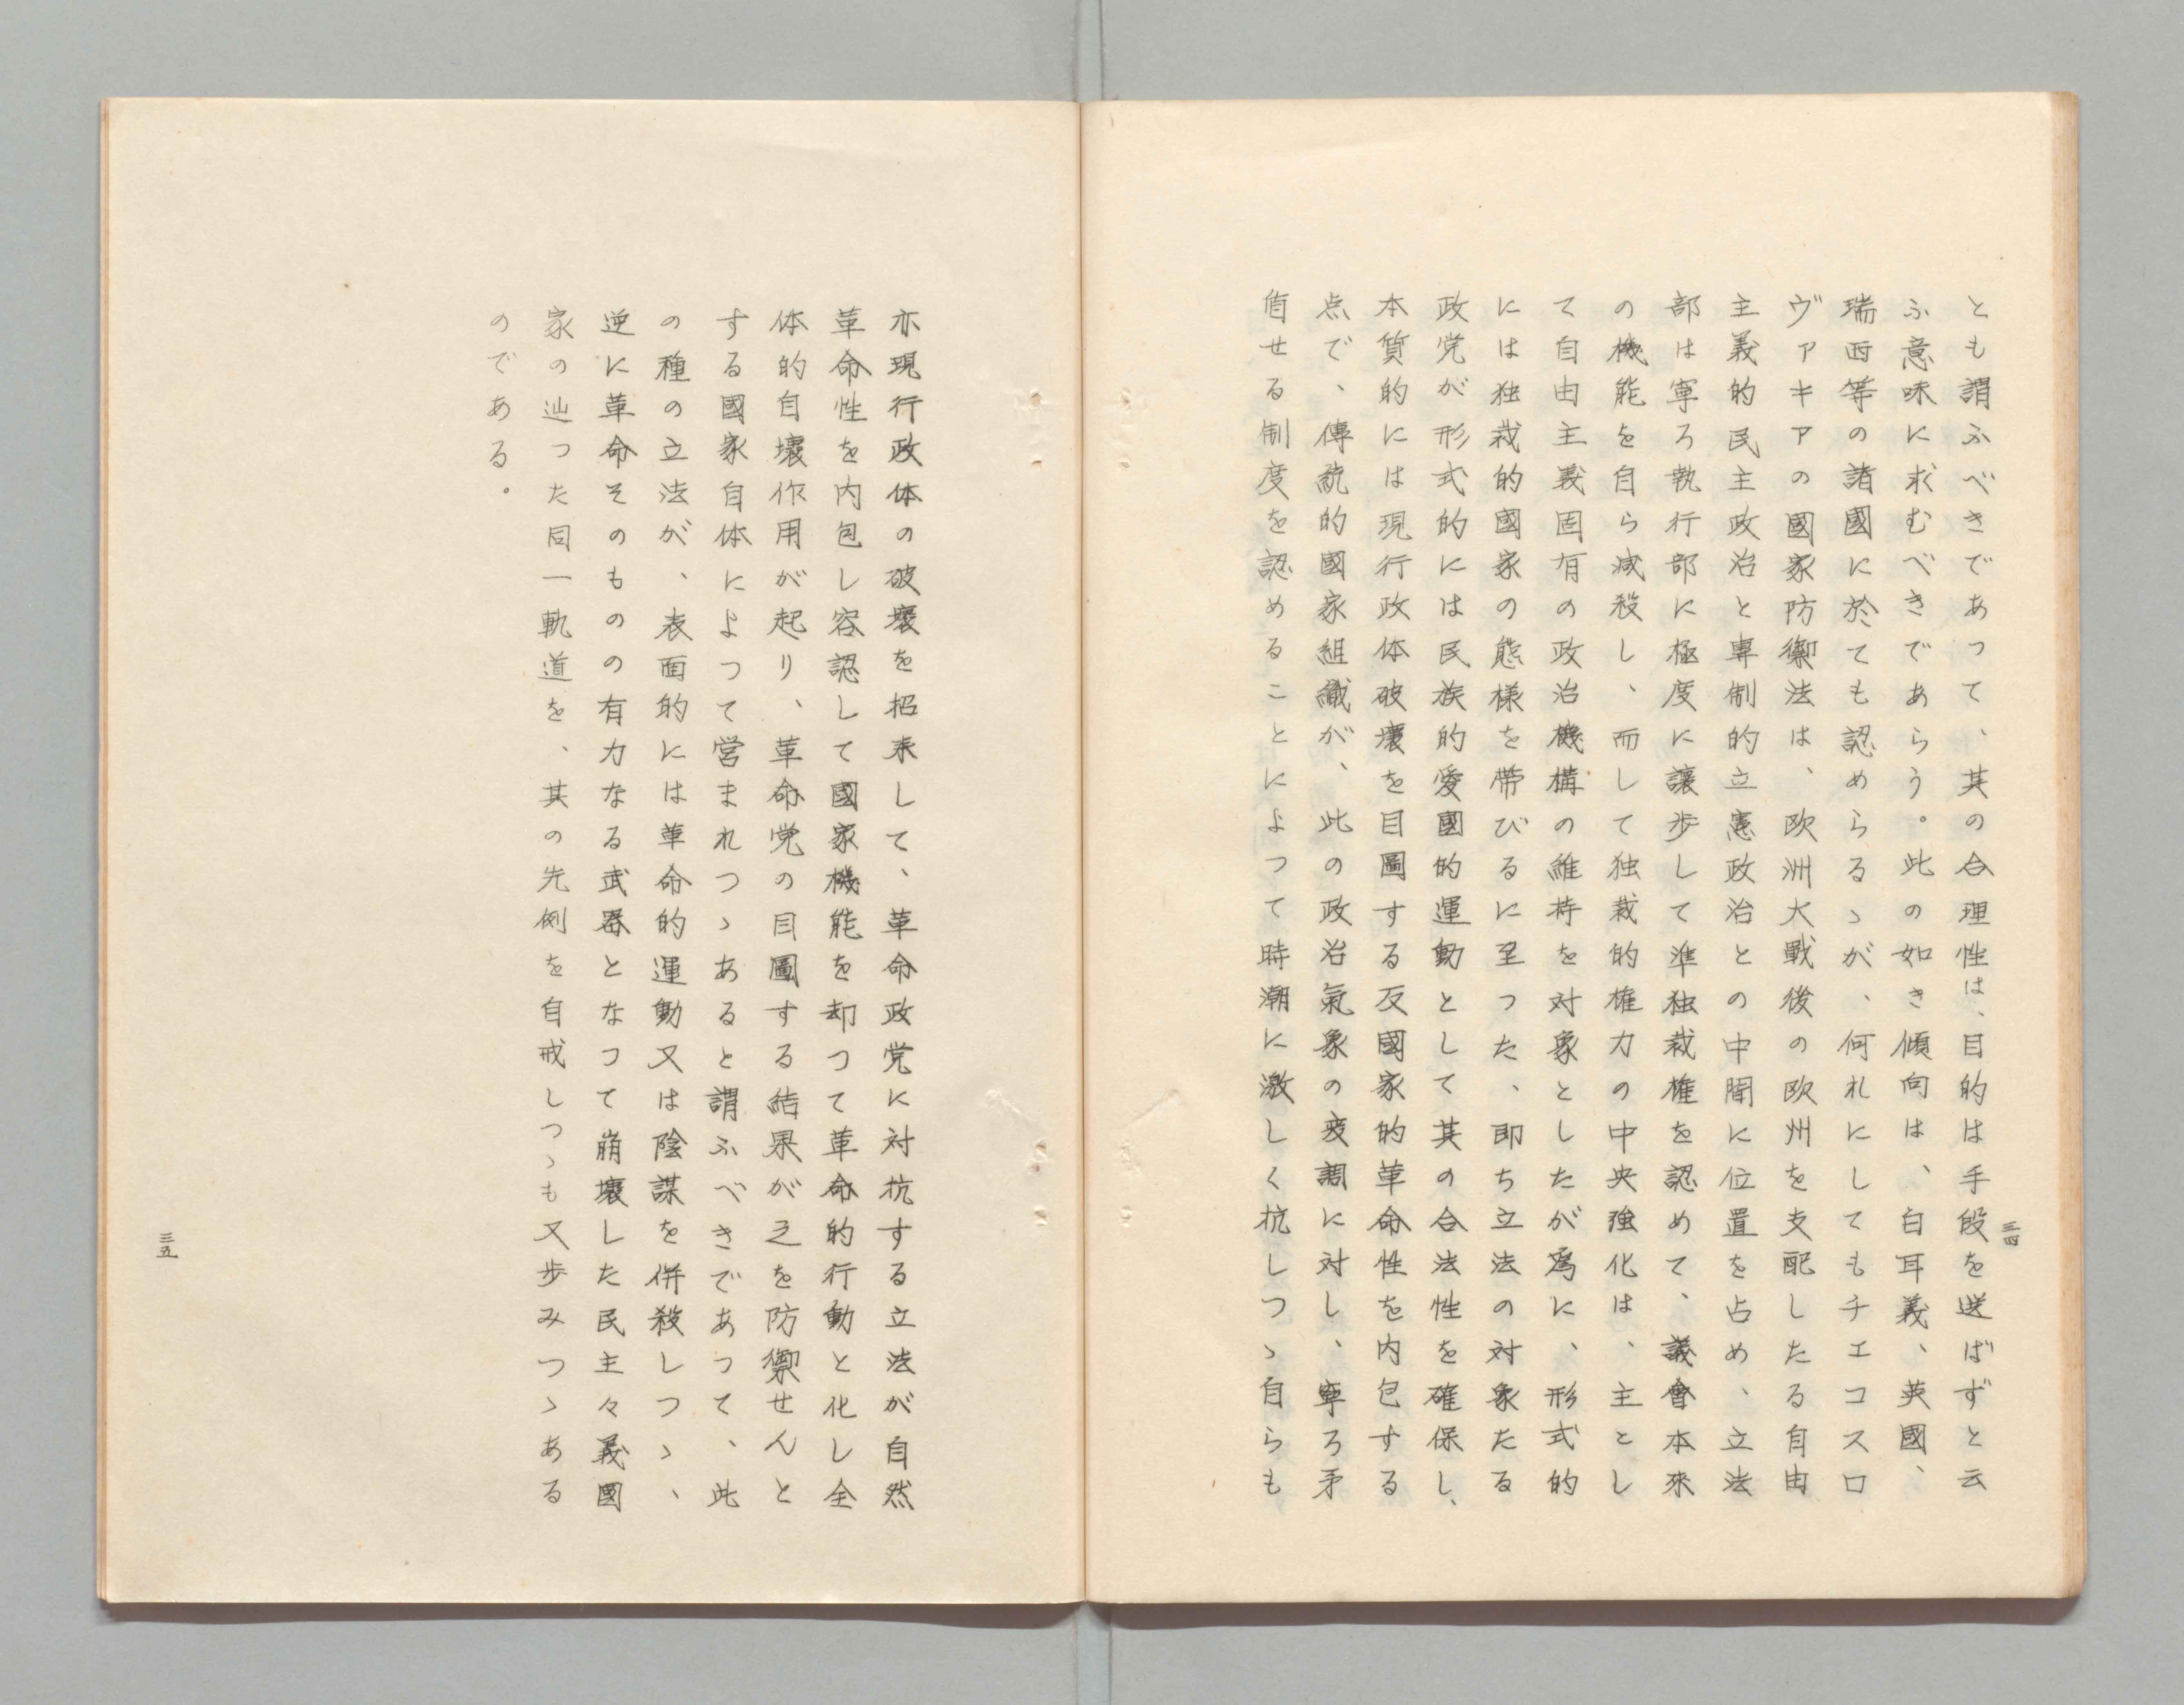 三四
とも謂ふべきであつて、其の合理性は、目的は手段を送ばずと云
ふ意味に求むべきであらう。此の如き傾向は、白耳義、英國、
瑞西等の諸國に於ても認めらるゝが、何れにしてもチエコスロ
ヴアキアの國家防禦法は、欧洲大戰後の欧州を支配したる自由
主義的民主政治と專制的立憲政治との中間に位置を占め、立法
部は寧ろ執行部に極度に讓歩して準独裁権を認めて、議會本來
の機能を自ら減殺し、而して独裁的権力の中央強化は、主とし
て自由主義固有の政治機構の維持を対象としたが爲に、形式的
には独裁的國家の態様を帯びるに至つた、即ち立法の対象たる
政党が形式的には民族的愛國的運動として其の合法性を確保し、
本質的には現行政体破壞を目圖する反國家的革命性を内包する
点で、傳統的國家組織が、此の政治氣象の変調に対し、寧ろ矛
盾せる制度を認めることによつて時潮に激しく抗しつゝ自らも
亦現行政体の破壞を招来して、革命政党に対抗する立法が自然
革命性を内包し容認して國家機能を却つて革命的行動と化し全
体的自壞作用が起り、革命党の目圖する結果が之を防禦せんと
する國家自体によつて営まれつゝあると謂ふべきであつて、此
の種の立法が、表面的には革命的運動又は陰謀を併殺しつゝ、
逆に革命そのものの有力なる武器となつて崩壞した民主々義國
家の辿つた同一軌道を、其の先例を自戒しつゝも又歩みつゝある
のである。
三五